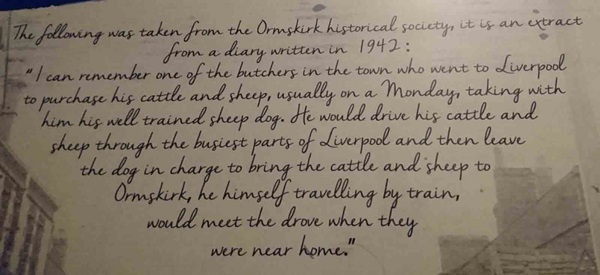 The following was taken from the Ormskirk historical society, it is an extract
from a diary written in 1942:
"I can remember one of the butchers in the town who went to Liverpool
to purchase his cattle and sheep, usually on a Monday, taking with
him his well trained sheep dog. He would drive his cattle and
sheep through the busiest parts of Liverpool and then leave
the dog in charge to bring the cattle and sheep to
Ormskirk, he himself travelling by train,
would meet the drove when they
were near home."